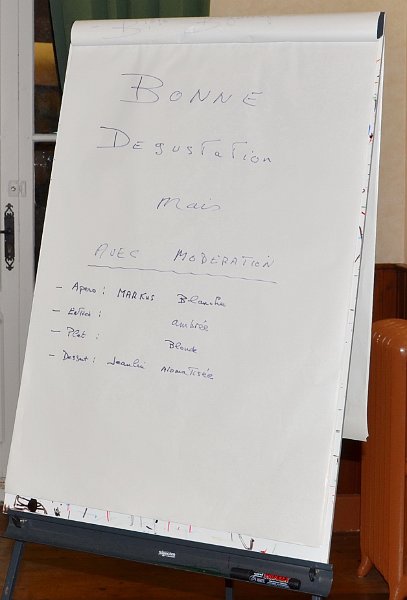 BONNE
DEgustation
mais
AVEC MODERATION
- Apero : MARKUS Blanche
- Entrée : ambrée
- Plat : Blonde
- Dessert : Aromatisée